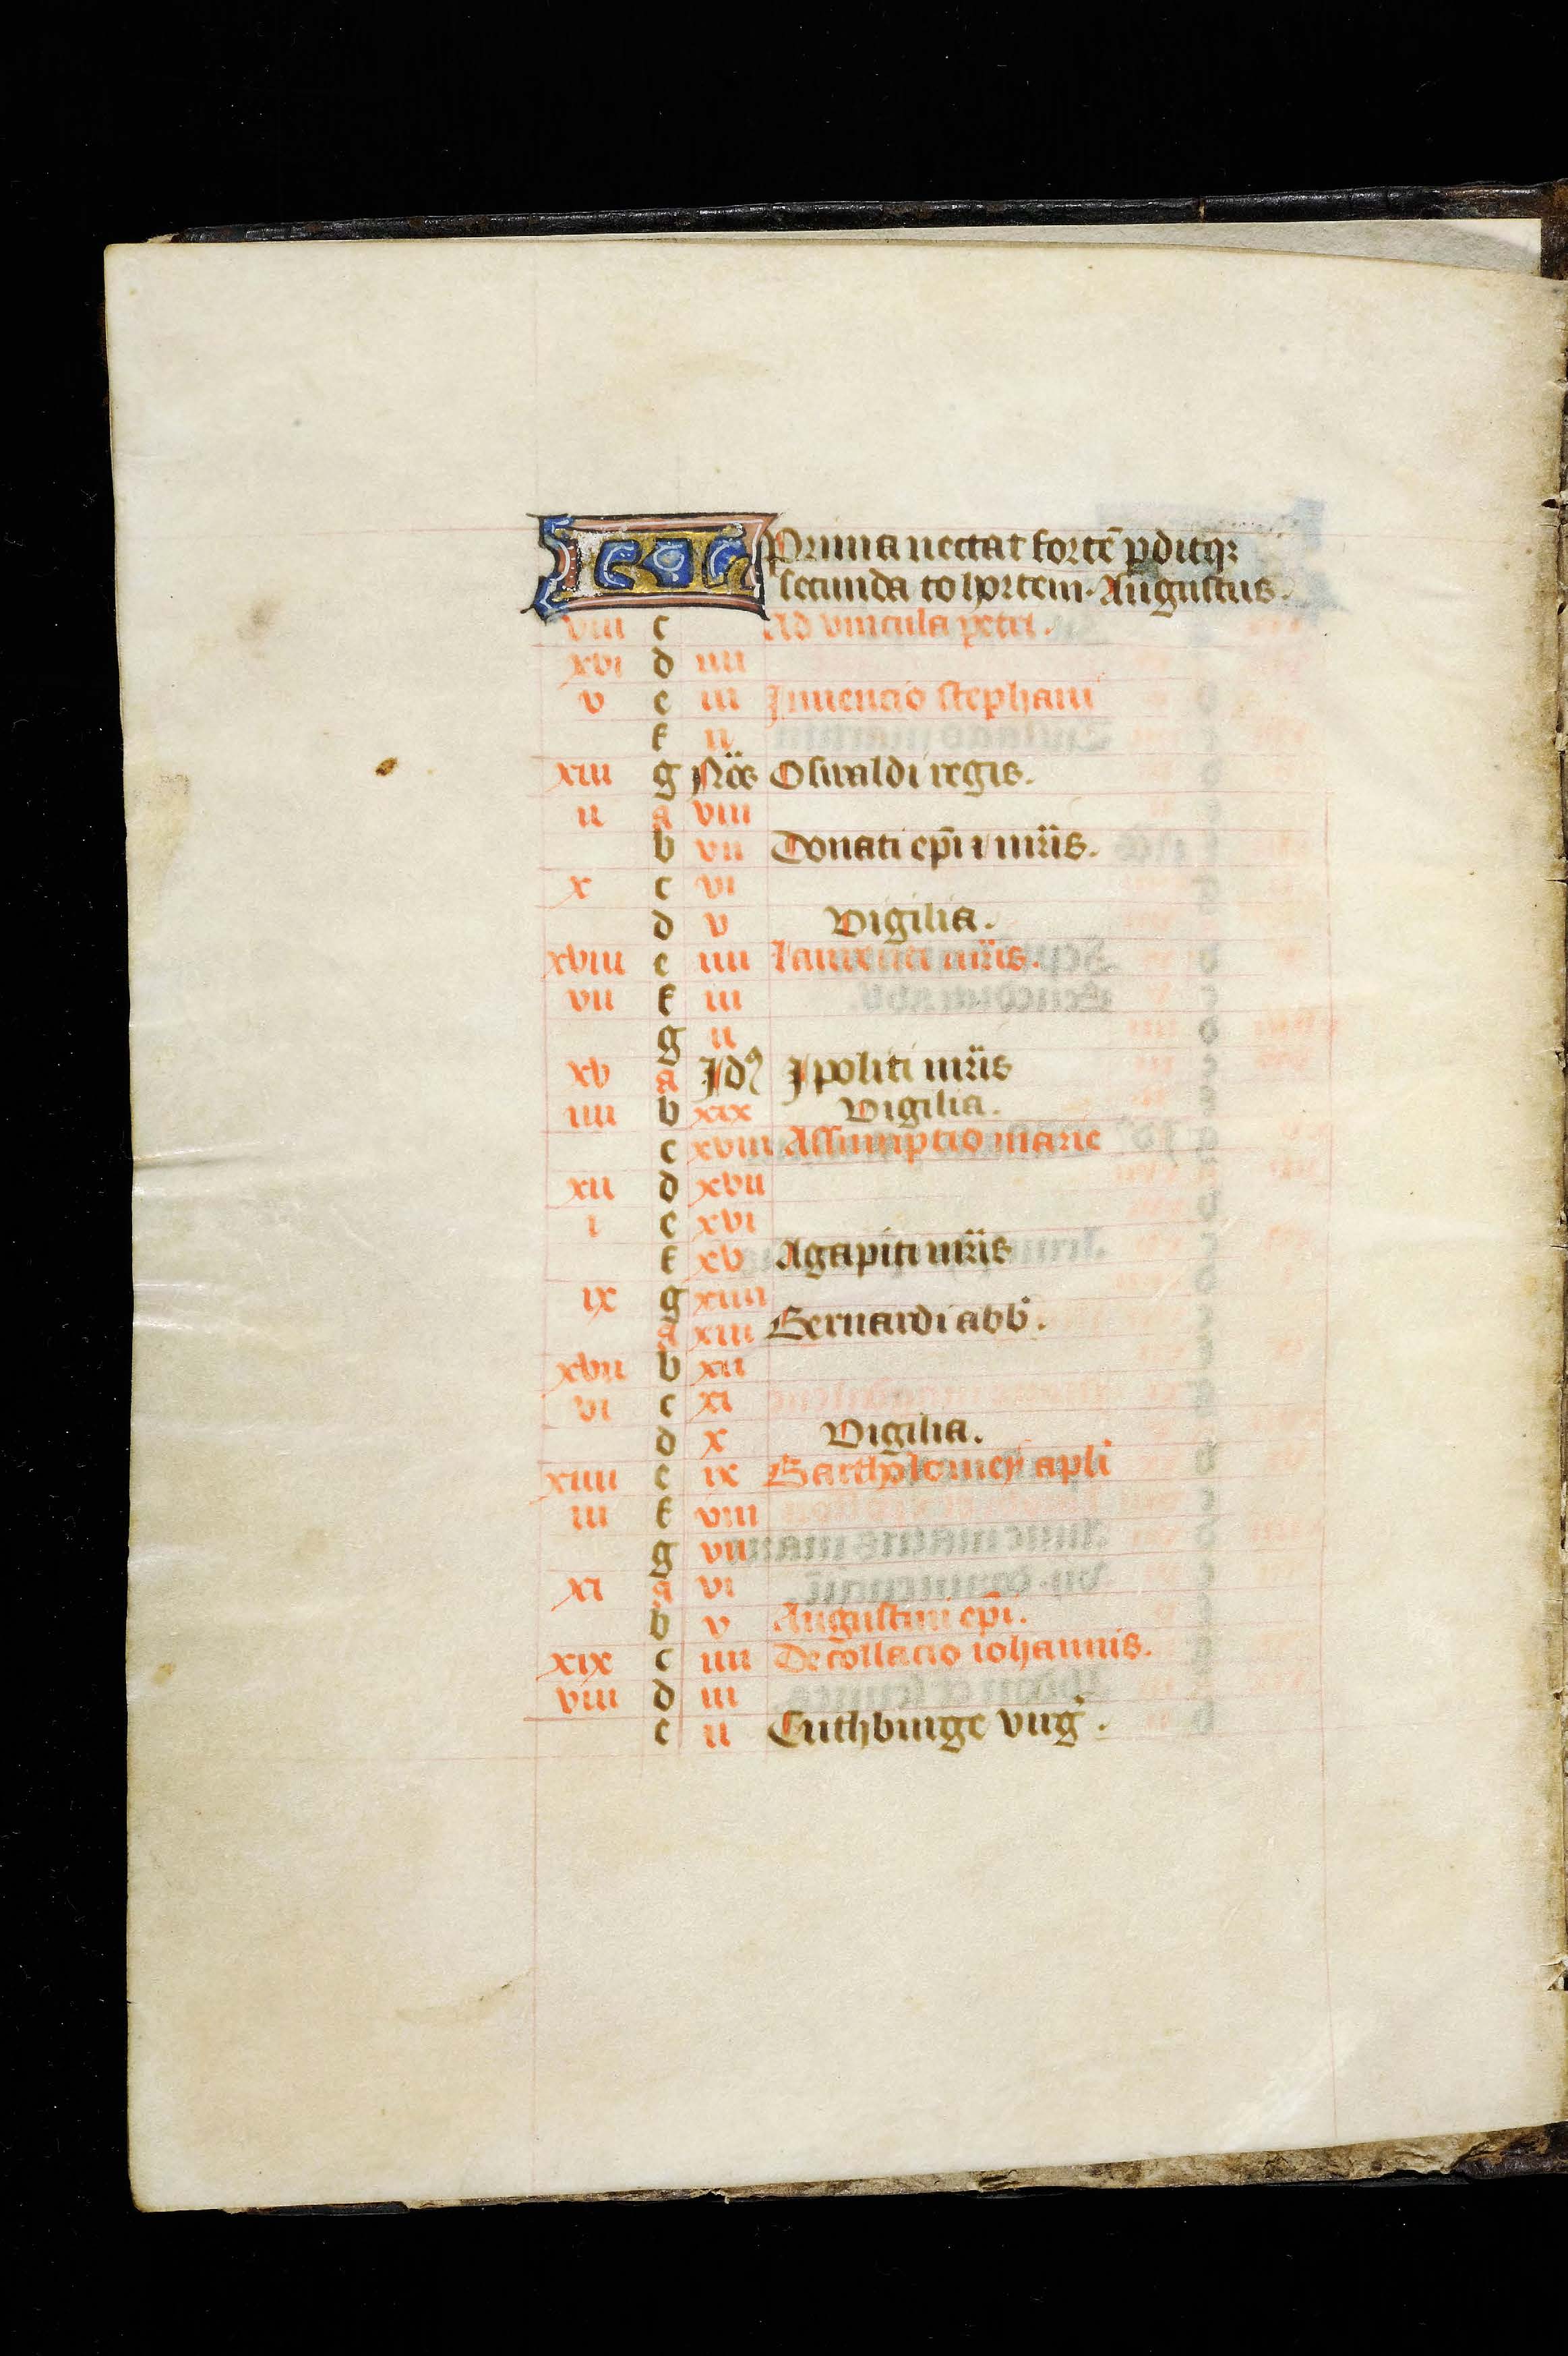 KL Prima nectat fortē p̄ditq;
secunda cohortem. Augustus.
viii c Ad vincula petri.
xvi d iiii
v e iii Inuencio stephani
f ii
xiii g Nōs Oswaldi regis.
ii a viii
b vii Donati ep̄i ⁊ mr̄is.
x c vi
d v Vigilia.
xviii e iiii laurenti mr̄is.
vii f iii
g ii
xv a Idꝰ Ipoliti mr̄is
iiii b xix Vigilia.
c xviii Assumptio marie
xii d xvii
i e xvi
f xv Agapiti mr̄is
ix g xiiii
a xiii Bernardi abb̄.
xvii b xii
vi c xi
d x Vigilia.
xiiii e ix Bartholomey apl̄i
iii f viii
g vii
xi a vi
b v Augustini ep̄i.
xix c iiii Decollacio iohannis.
viii d iii
e ii Cuthburge virḡ.